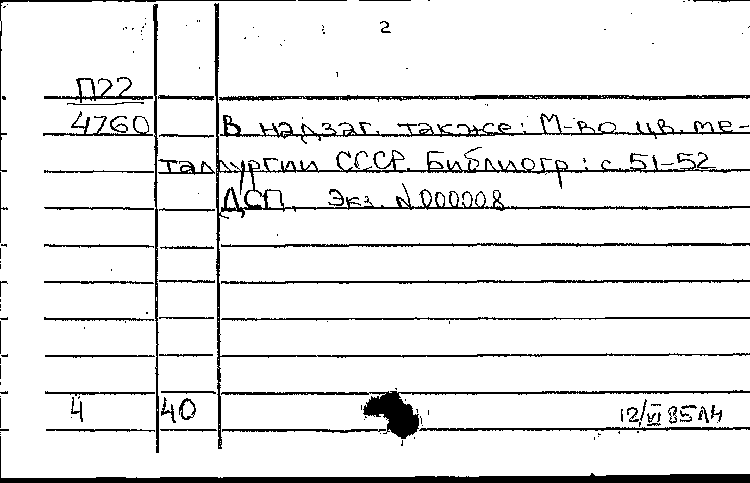 2
П22
4760 В надзаг. также: М-во цв. ме-
таллургии СССР. Библиогр.: с. 51-52
ДСП. Экз. N 000008
4 40 12/VI 85 ЛЧ